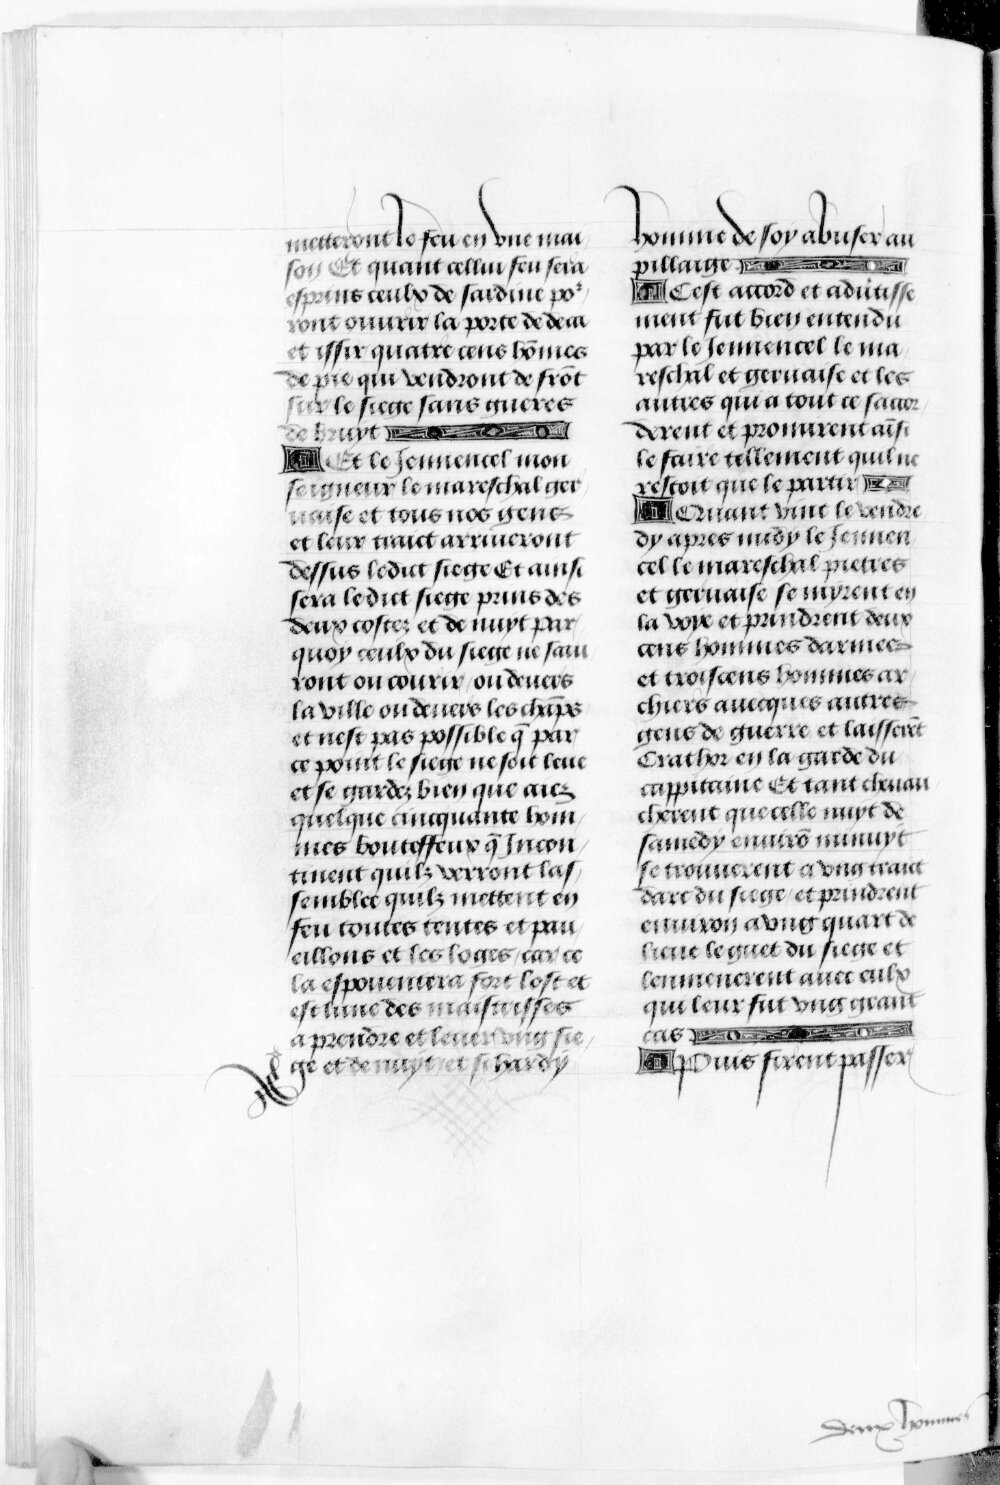 metteront le feu en vne mai
son Et quant cellui feu sera
esprins ceulx de sardine por
ront ouurir la porte de deca
et issir quatre cens hōmes
de pie qui vendront de frōt
sur le siege sans gueres
de bruyt
Et le Jennencel mon
seigneur le mareschal ger
uaise et tous nos gens
et leur traict arriueront
dessus ledict siege Et ainsi
sera ledict siege prins des
deux costez et de nuyt par
quoy ceulx du siege ne sau
ront ou courir / ou deuers
la ville ou deuers les chāps
et nest pas possible q̄ par
ce point le siege ne soit leue
et se gardez bien que aiez
quelque cincquante hom
mes bouteffeux q̄ Jncon
tinent quilz verront las
semblee quilz mettent en
feu toutes tentes et pau
eillons et les loges / car ce
la espouentera fort lost et
est lune des maistrisses
a prendre et leuer vng sie
ge et de nuyt / et si hardy
homme de soy abuser au
pillaige
Cest accord et aduertisse
ment fut bien entendu
par le Jennencel le ma
reschal et geruaise et les
autres qui a tout ce saccor
derent et promirent aīsi
le faire tellement quil ne
restoit que le partir
Et quant vint le vendre
dy apres midy le Jennen
cel le mareschal pietres
et geruaise se myrent en
la voye et prindrent deux
cens hommes darmes
et troiscens hommes ar
chiers auecques autres
gens de guerre et laisserēt
Crathor en la garde du
cappitaine Et tant cheuau
cherent que celle nuyt de
samedy enuirō minuyt
se trouuerent a vng traict
darc du siege / et prindrent
enuiron a vng quart de
lieue le guet du siege et
lenmenerent auec eulx
qui leur fut vng grant
cas
Puis firent passer
deux hommes